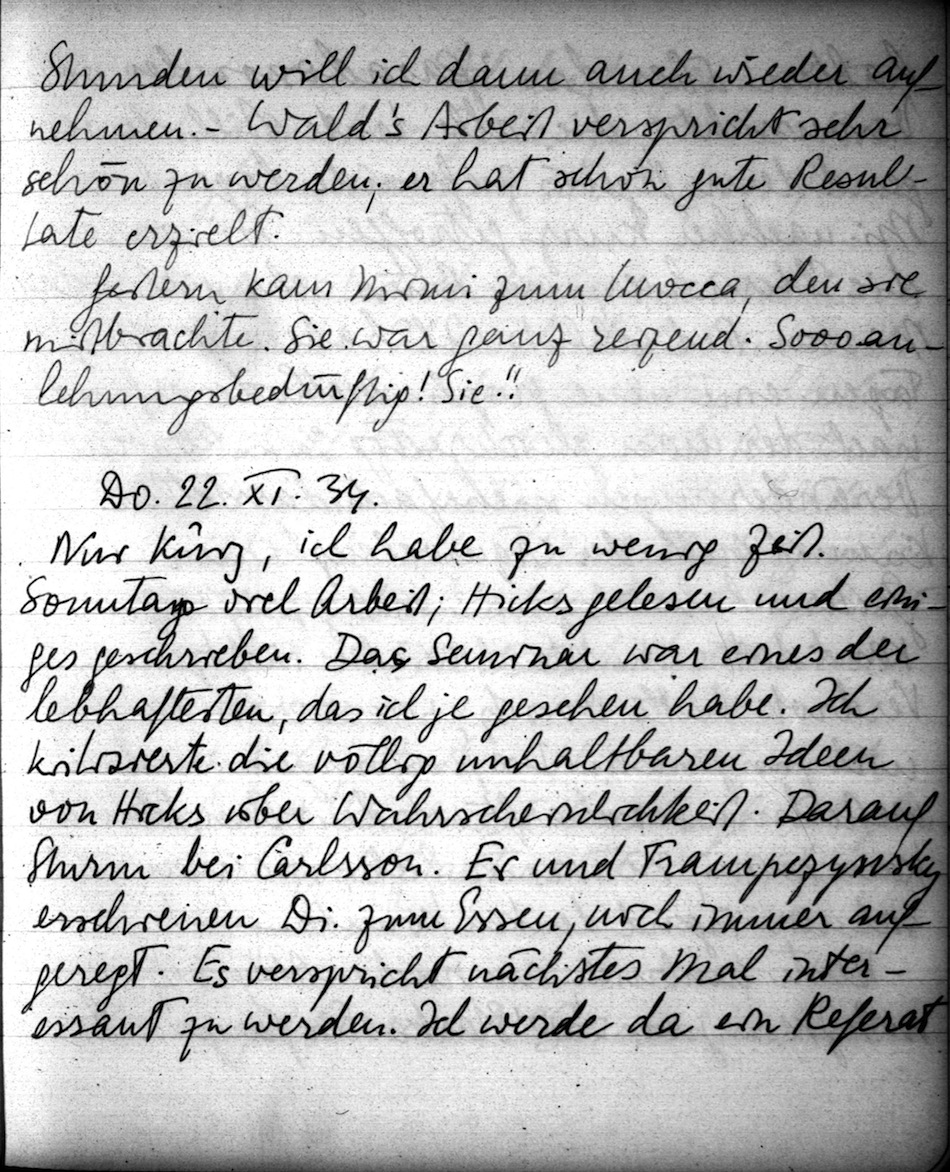 Stunden will ich dann auch wieder auf-
nehmen. - Wald's Arbeit verspricht sehr
schön zu werden; er hat schon gute Resul-
tate erzielt.
Gestern kam Mimi zum Mocca, den sie
mitbrachte. Sie war ganz reizend. Sooo an-
lehnungsbedürftig! Sie!!
Do. 22. XI. 34.
Nur kurz, ich habe zu wenig Zeit.
Sonntag viel Arbeit; Hicks gelesen und eini-
ges geschrieben. Das Seminar war eines der
lebhaftesten, das ich je gesehen habe. Ich
kritisierte die völlig unhaltbaren Ideen
von Hicks über Wahrscheinlichkeit. Darauf
Sturm bei Carlsson. Er und Trampczynsky
erschienen Di. zum Essen, noch immer auf-
geregt. Es verspricht nächstes Mal inter-
essant zu werden. Ich werde da ein Referat